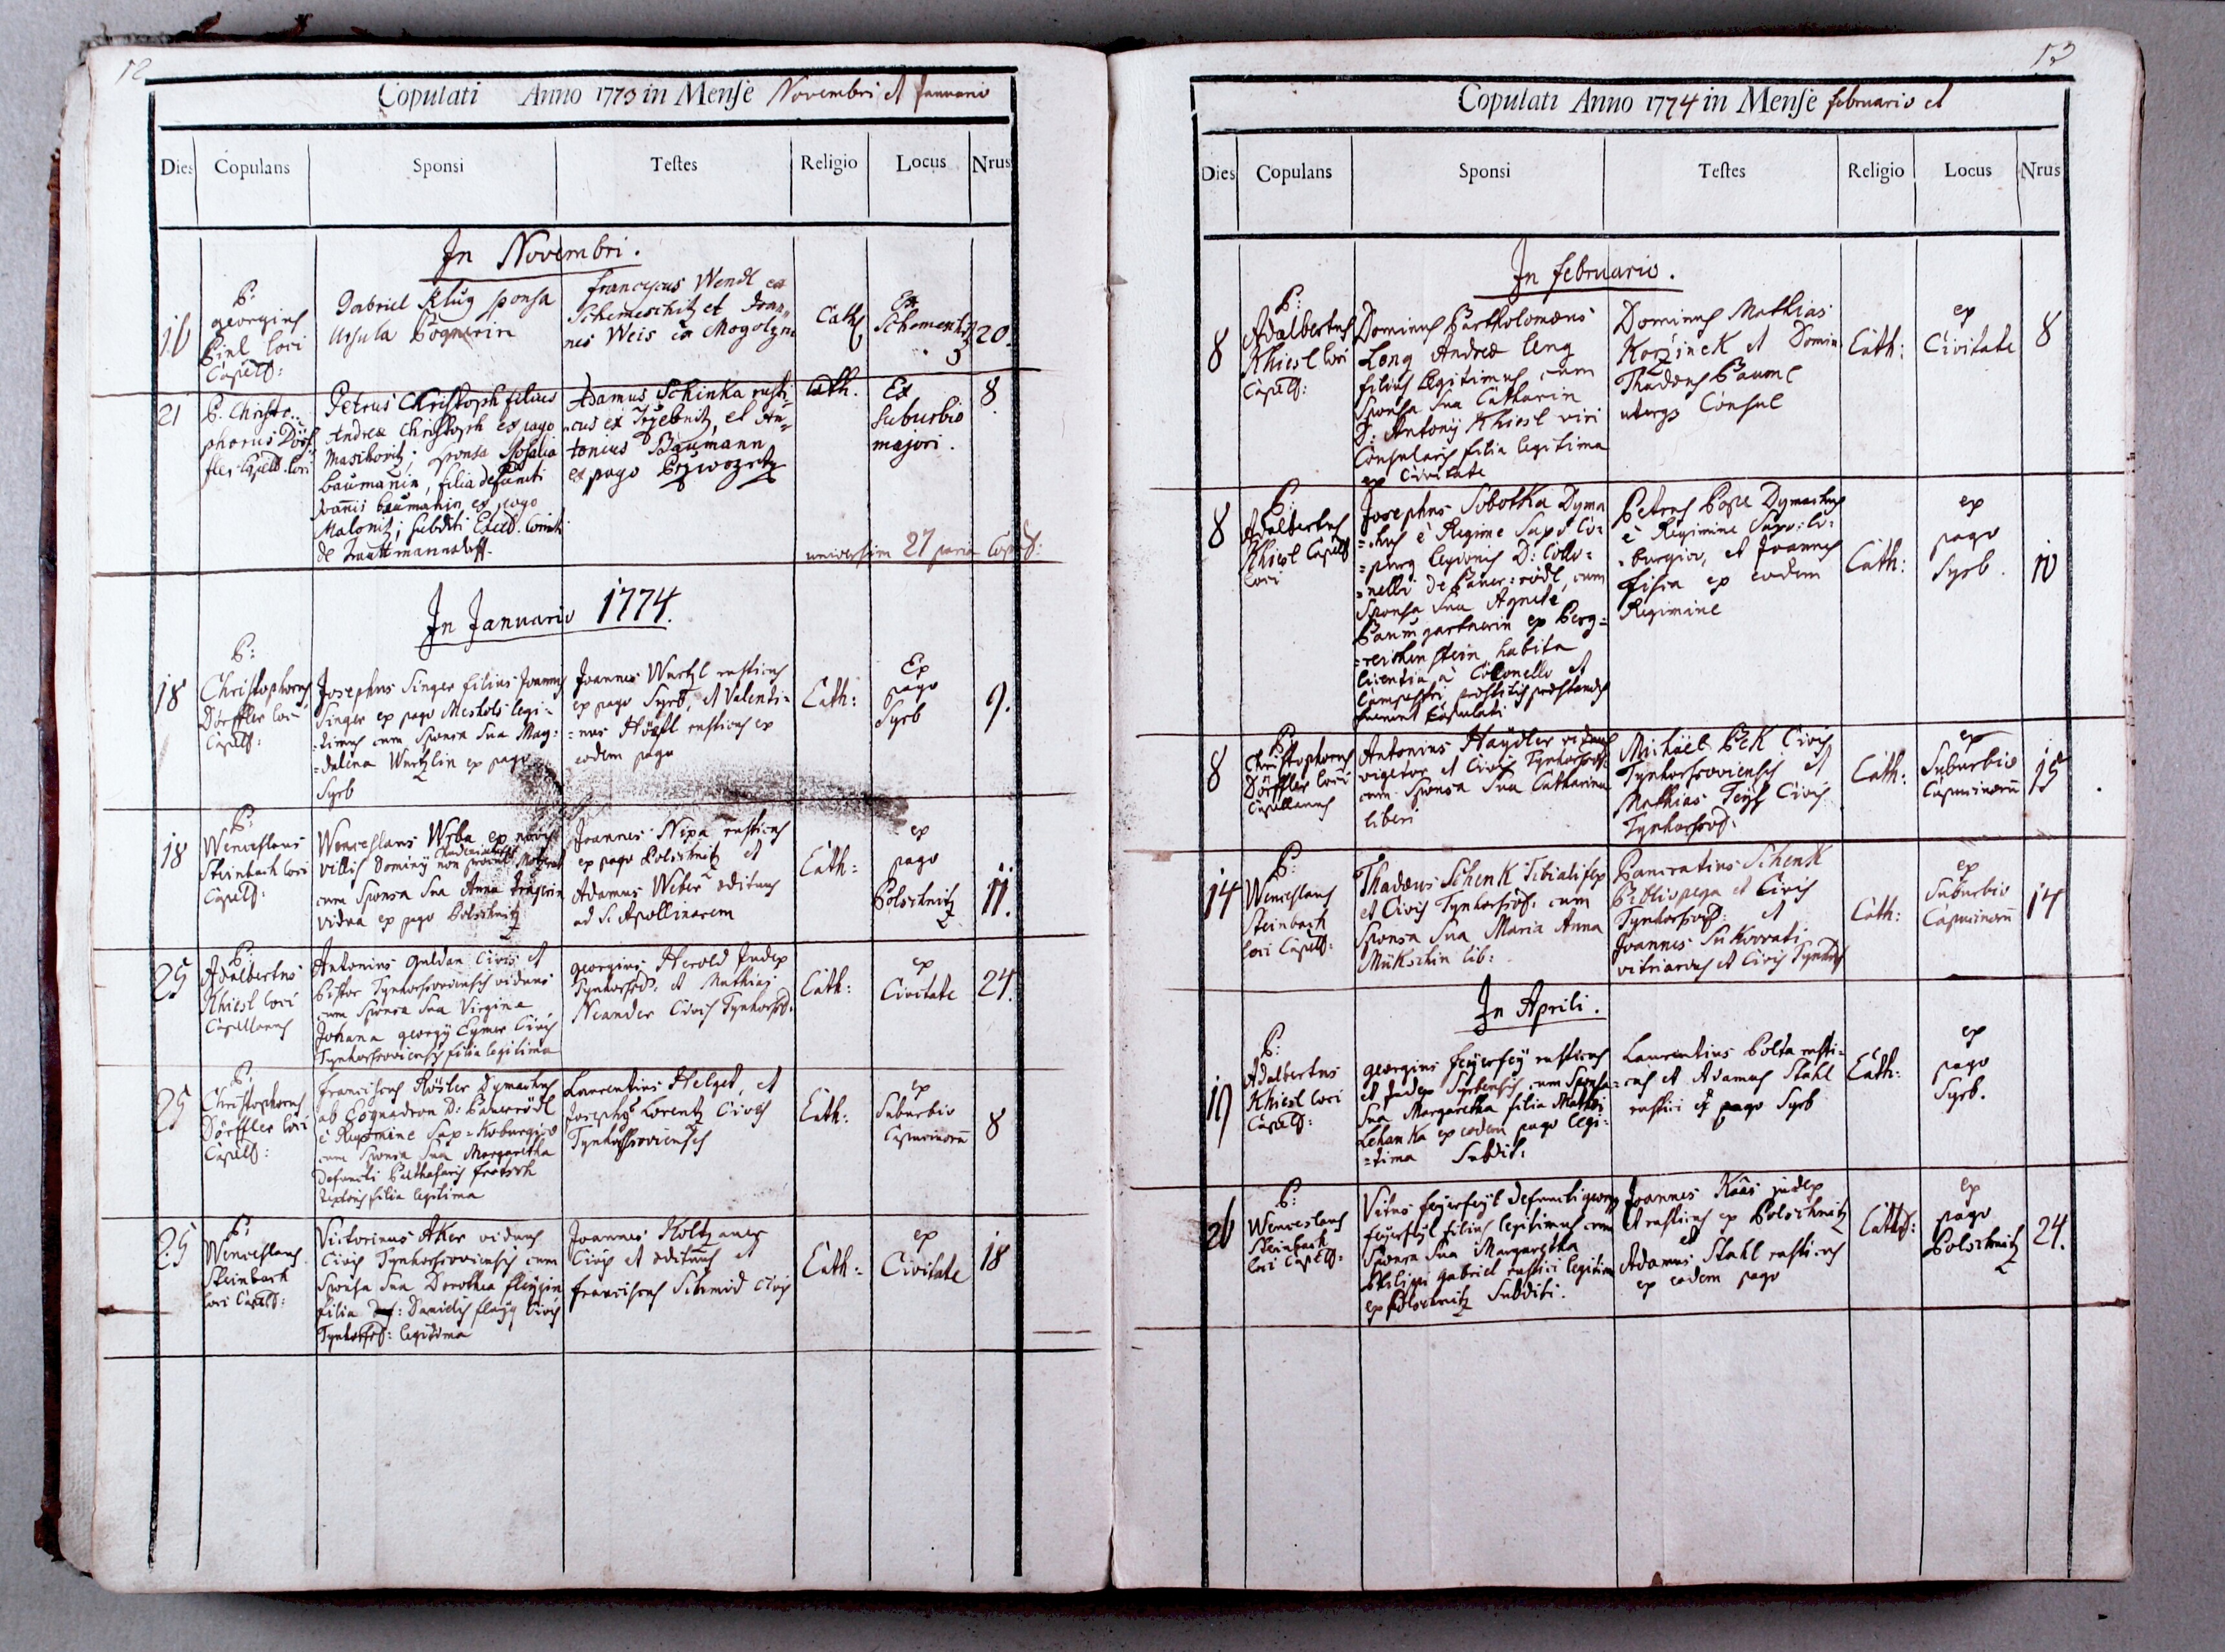 12
Copulati Anno 1773 in Mense Novembri et Januario
Dies Copulans Sponsi Testes Religio Locus Nrus
In Novembri.
16
P:
georgius
Piel loci
Capell:
Gabriel Klug sponsa
Ursula Pognerin
franciscus Wendl ex
Schemeschitz et Joan„
nes Weis ex Mogolzen
Cath
Ex
Schementz
20.
21
P. Christo„
phorus Dörf„
fler Capell. loci
Petrus Christoph filius
Andreæ Christoph ex pago
Maschovitz; sponsa Rosalia
baumanin, filia defuncti
Joannis baumanin ex pago
Malonitz; subditi Excell. Comitis
de Trauttmannsdorff.
Adamus Schinka rusti„
cus ex Trzebnitz, et An„
tonius Baumann
ex pago
Cath.
Ex
suburbio
majori.
8.
universim 27 paria Copul:
In Januario 1774.
18
P:
Christophorus
Dörffler loci
Capell:
Josephus Singer filius Joannis
Singer ex pago Meshols legi=
=timus cum Sponsa Sua Mag=
=dalena Wurtzlin ex pago
Syrb
Joannes Wurtzl rusticus
ex pago Syrb, et Valenti=
=nus Hösl rusticus ex
eodem pago
Cath:
Ex
pago
Syrb
9.
18
P:
Wenceslaus
Steinbach loci
Capell:
Wenceslaus Wrba ex novis
villis Dominij non procul
cum Sponsa Sua Anna Tragerin
vidua ex pago Polschnitz
Joannes Nixa rusticus
ex pago Polschnitz et
Adamus Weber ædituus
ad S: Apollinarem
Cath:
ex
pago
Polschnitz
11.
25
P:
Adalbertus
Khiesl loci
Capellanus
Antonius Guldan Civis et
Pistor Tynhorsoviensis viduus
cum Sponsa Sua Virgine
Johana georgij Eymer Civis
Tynhorsoviensis filia legitima
georgius Herold Judex
Tynhorsov: et Mathias
Neander Civis Tynhorsov.
Cath:
ex
Civitate
24.
25
P:
Christophorus
Dörffler loci
Capell:
franciscus Rösler Dymachus
ab Esquadron D: Panerrödl
è Regimine Sax=Koburgico
cum Sponsa Sua Margaretha
Defuncti Balthasaris frötsch
textoris filia legitima
Laurentius Helget, et
Josephus Lorentz Cives
Tynhorsoviensis
Cath:
ex
Suburbio
Capucinorum
8
25
P:
Wenceslaus
Steinbach
loci Capell:
Victorinus Aker viduus
Civis Tynhorsoviensis cum
Sponsa Sua Dorothea fleygin
filia Def: Danielis fleyg Civis
Tynhorsov: legitima
Joannes Holtzauer
Civis et ædituus et
franciscus Schmid Civis
Cath:
ex
Civitate
18
13
Copulati Anno 1774 in Mense februario et
Dies Copulans Sponsi Testes Religio Locus Nrus
In februario.
8
P:
Adalbertus
Khiesl loci
Capell:
Dominus Bartholomæus
Leng Andreæ Leng
filius legitimus cum
Sponsa Sua Catharin
D: Antonij Khiesl viri
Consularis filia legitima
ex Civitate
Dominus Mathias
Korzinek et Domin
Thadeus Pauml
uterq3 Consul
Cath:
ex
Civitate
8
8
P:
Adalbertus
Khiesl Capell
loci
Josephus Sobotka Dyma
=chus è Regime Saxo Co=
=purg legionis D: Colo=
=nelli de Paner=rödl, cum
Sponsa Sua Agnete
Paumgartnerin ex Berg=
=reichenstein habita
licentia à Colonello et
Campestri
fuerunt Copulati
Petrus Popl Dymachus
è Regimine Saxo=Co=
=burgico, et Joannes
fisia ex eodem
Regimine
Cath:
ex
pago
Syrb.
10
8
P:
Christophorus
Dörffler loci
Capellanus
Antonius Haydler viduus
vigetor et Civis Tynhorsov:
cum Sponsa Sua Catharina
liberi
Michael Pek Civis
Tynhorsoviensis et
Mathias Teysl Civis
Tynhorsov:
Cath:
ex
Suburbio
Capucinorum
15.
14
P:
Wenceslaus
Steinbach
loci Capell:
Thadæus Schenk Tibialifex
et Civis Tynhorsov: cum
Sponsa Sua Maria Anna
Mükschin lib:
Pancratius Schenk
Bibliopega et Civis
Tynhorsov: et
Joannes Sukovati
vitriarius et Civis Tynhors
Cath:
ex
Suburbio
Capucinorum
14
In Aprili.
19
P:
Adalbertus
Khiesl loci
Capell:
georgius feyerfeyl rusticus
et Judex Syrbensis, cum Sponsa
Sua Margaretha filia Mathæi
Lehanka ex eodem pago legi=
=tima Subdit:
Laurentius Polta rusti=
=cus et Adamus Stahl
rustici ex pago Syrb
Cath:
ex
pago
Syrb.
26
P:
Wenceslaus
Steinbach
loci Capell:
Vitus feyerfeyl defuncti georgij
feyerfeyl filius legitimus cum
Sponsa Sua Margaretha
Philippi Gabriel rustici legitima
ex Polschnitz Subditi.
Joannes Kaas judex
et rusticus ex Polschnitz
et
Adamus Stahl rusticus
ex eodem pago
Cath:
ex
pago
Polschnitz
24.